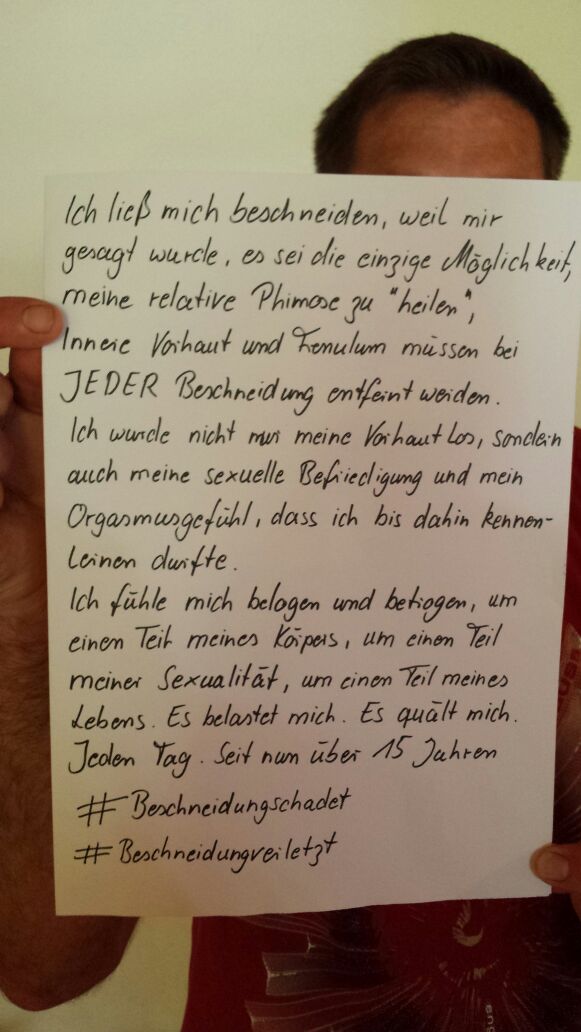 Ich ließ mich beschneiden, weil mir
gesagt wurde, es sei die einzige Möglichkeit,
meine relative Phimose zu "heilen",
Innere Vorhaut und Frenulum müssen bei
JEDER Beschneidung entfernt werden.
Ich wurde nicht nur meine Vorhaut los, sondern
auch meine sexuelle Befriedigung und mein
Orgasmusgefühl, dass ich bis dahin kennen-
lernen durfte.
Ich fühle mich belogen und betrogen, um
einen Teil meines Körpers, um einen Teil
meiner Sexualität, um einen Teil meines
Lebens. Es belastet mich. Es quält mich.
Jeden Tag. Seit nun über 15 Jahren
#Beschneidungschadet
#Beschneidungverletzt